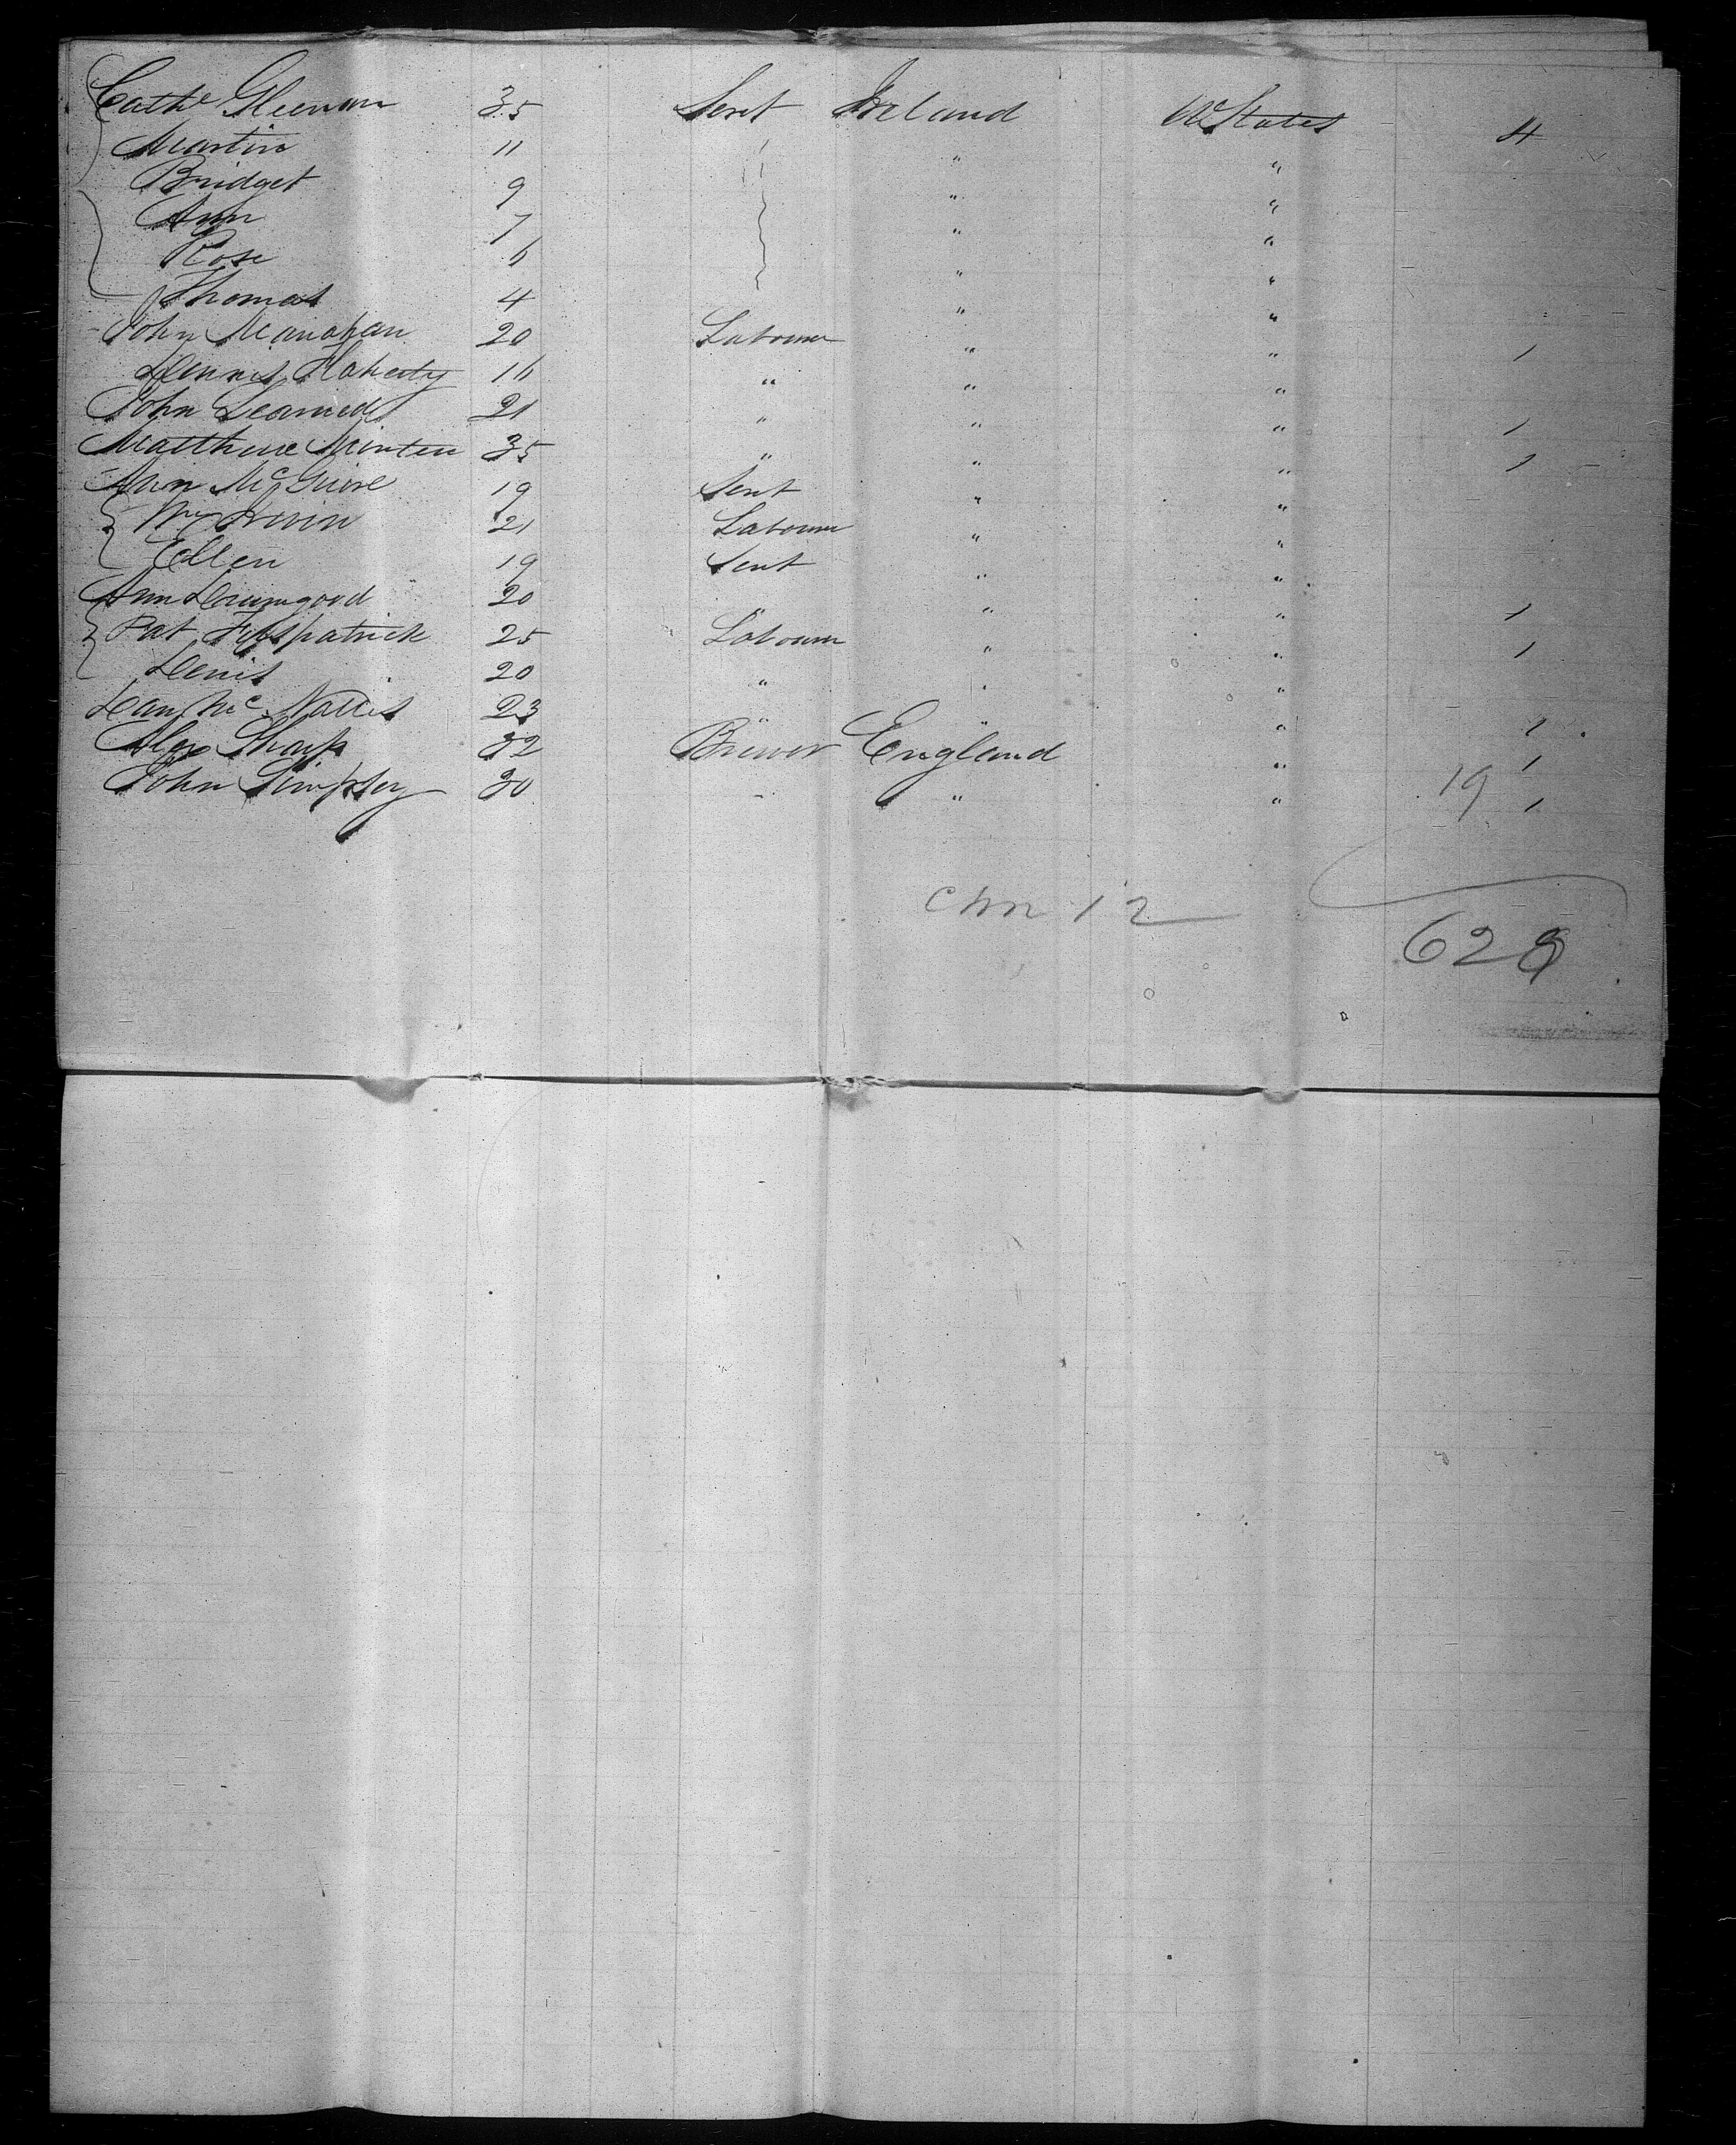 Cathe Gleenan 35 Servt Ireland U States 4
Martin 11 " "
Bridget 9 " "
Ann 7 " "
Rose 6 " "
Thomas 4 " "
John Manahan 20 Labourer " " 1
Dennis Flaherty 16 " " "
John Learned 21 " " " 1
Matthew Minten 35 " " " 1
Ann McGuire 19 Servt " "
Wm Irwin 21 Labourer " "
Ellen 19 Servt " "
Ann 20 " " " 1
Pat Fitspatrick 25 Labourer " " 1
Denis 20 " " "
Dan Mc 23 " " " 1
Alex Sharp 32 Brewer England " 1
John 30 " " " 19 1
12
628